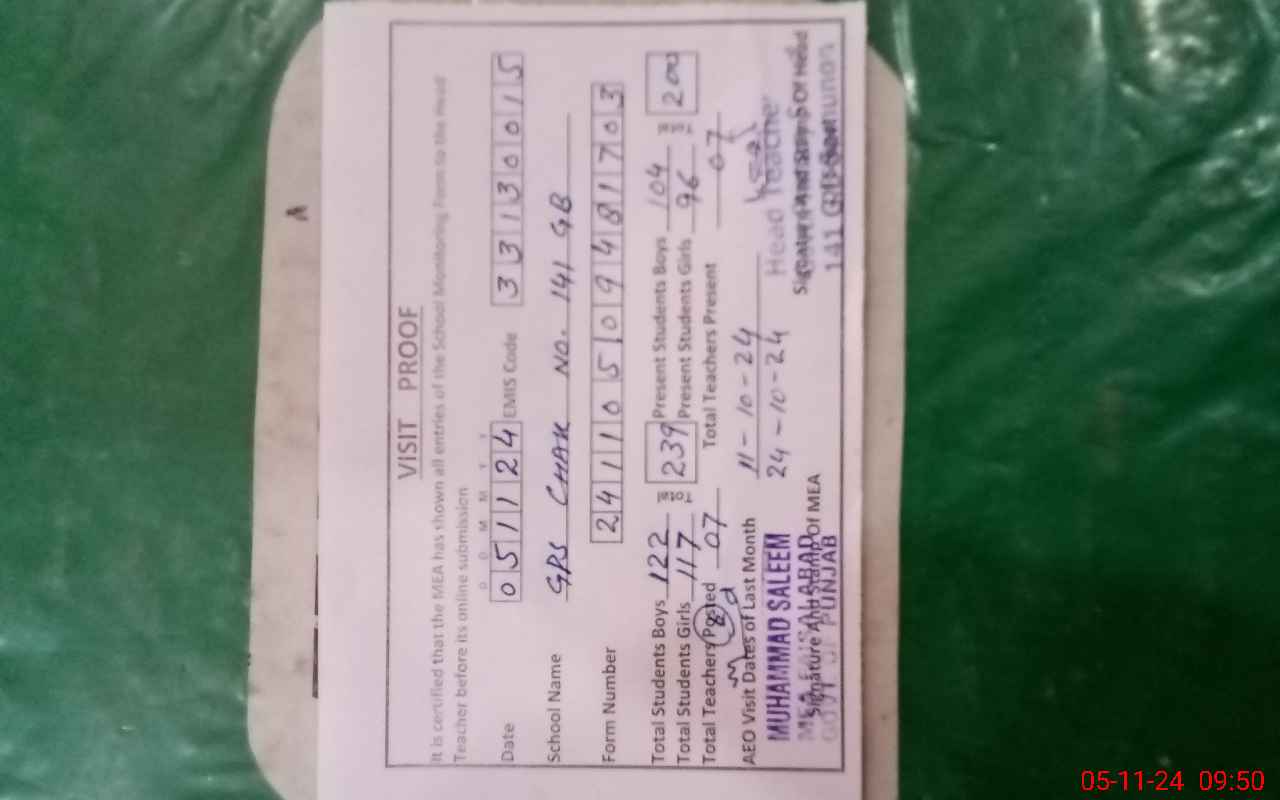 A
VISIT PROOF
It is certified that the MEA has shown all entries of the School Monitoring Form to the Head
Teacher before its online submission
D D M M Y Y
Date 051124 EMIS Code 33130015
School Name GPS CHAK NO. 141 GB
Form Number 24110509481703
Total Students Boys 122 239 Present Students Boys 104 200
Total Students Girls 117 Present Students Girls 96
Total Teachers Posted 07 Total Teachers Present 07
AEO Visit Dates of Last Month 11-10-24
24-10-24
MUHAMMAD SALEEM Head Teacher
MEA FAISALABAD
Signature And Stamp Of MEA Signature And Stamp Of Head
GOVT OF PUNJAB 141 GB Samunon
05-11-24 09:50